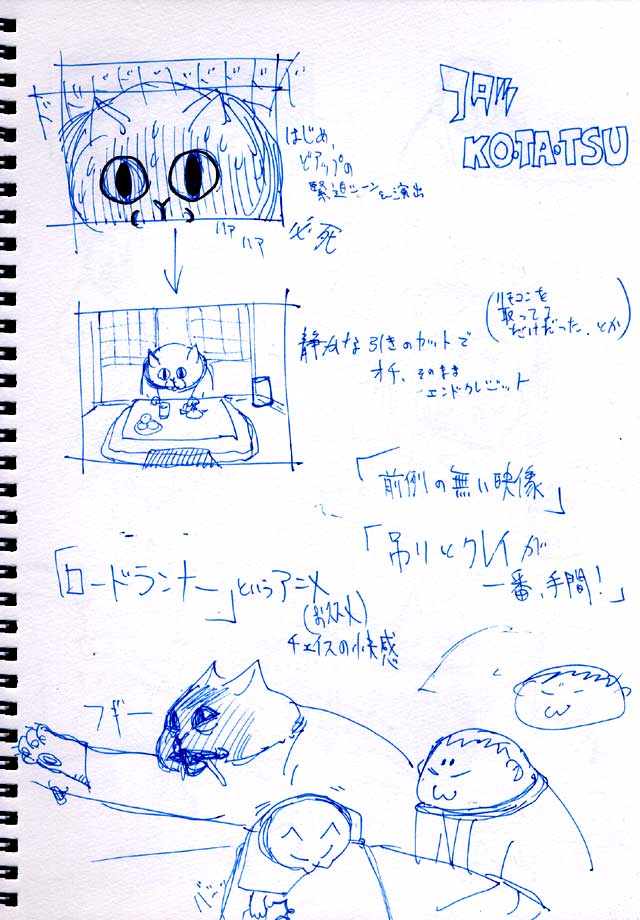 KO・TA・TSU
はじめ、
どアップの
緊迫シーンを演出
ハァ
ハァ
必死
静かな引きのカットで
オチ、そのまま
エンドクレジット
(リモコンを
取ってる
だけだった、とか)
「前例の無い映像」
「吊りとクレイが
一番、手間!」
「ロードランナー」というアニメ
(お久メ)
チェイスの快感
フギー